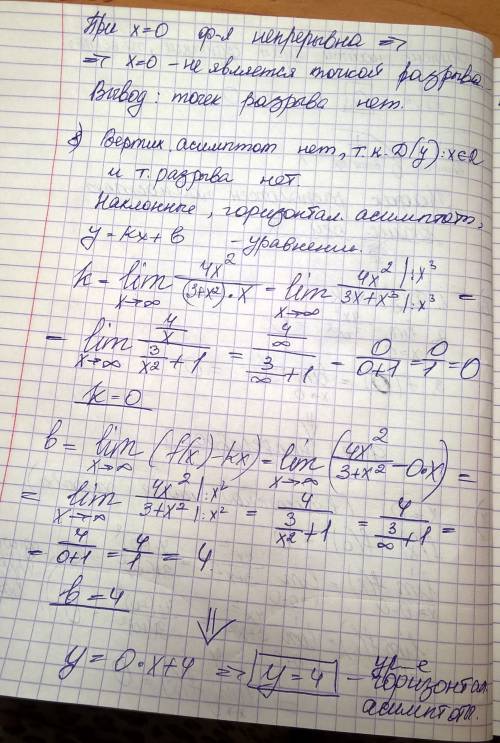 При x=0 ф-я непрерывна =>
=> x=0 - не является точкой разрыва.
Вывод: точек разрыва нет.
8) Вертик. асимптот нет, т.к. D(y): x∈R
и т. разрыва нет.
Наклонные, горизонтал. асимптоты,
y = kx + b - уравнение.
k = lim x→∞ 4x²/((3+x²)·x) = lim x→∞ 4x² |:x³ / 3x+x³ |:x³ =
= lim x→∞ (4/x)/(3/x²+1) = (4/∞)/(3/∞+1) = 0/(0+1) = 0/1 = 0
k=0
b = lim x→∞ (f(x)-kx) = lim x→∞ (4x²/(3+x²) - 0·x) =
= lim x→∞ 4x² |:x² / 3+x² |:x² = 4/(3/x²+1) = 4/(3/∞+1) =
= 4/(0+1) = 4/1 = 4
b=4
⇓
y = 0·x+4 => y=4 - ур-е
горизонтал.
асимптоты.